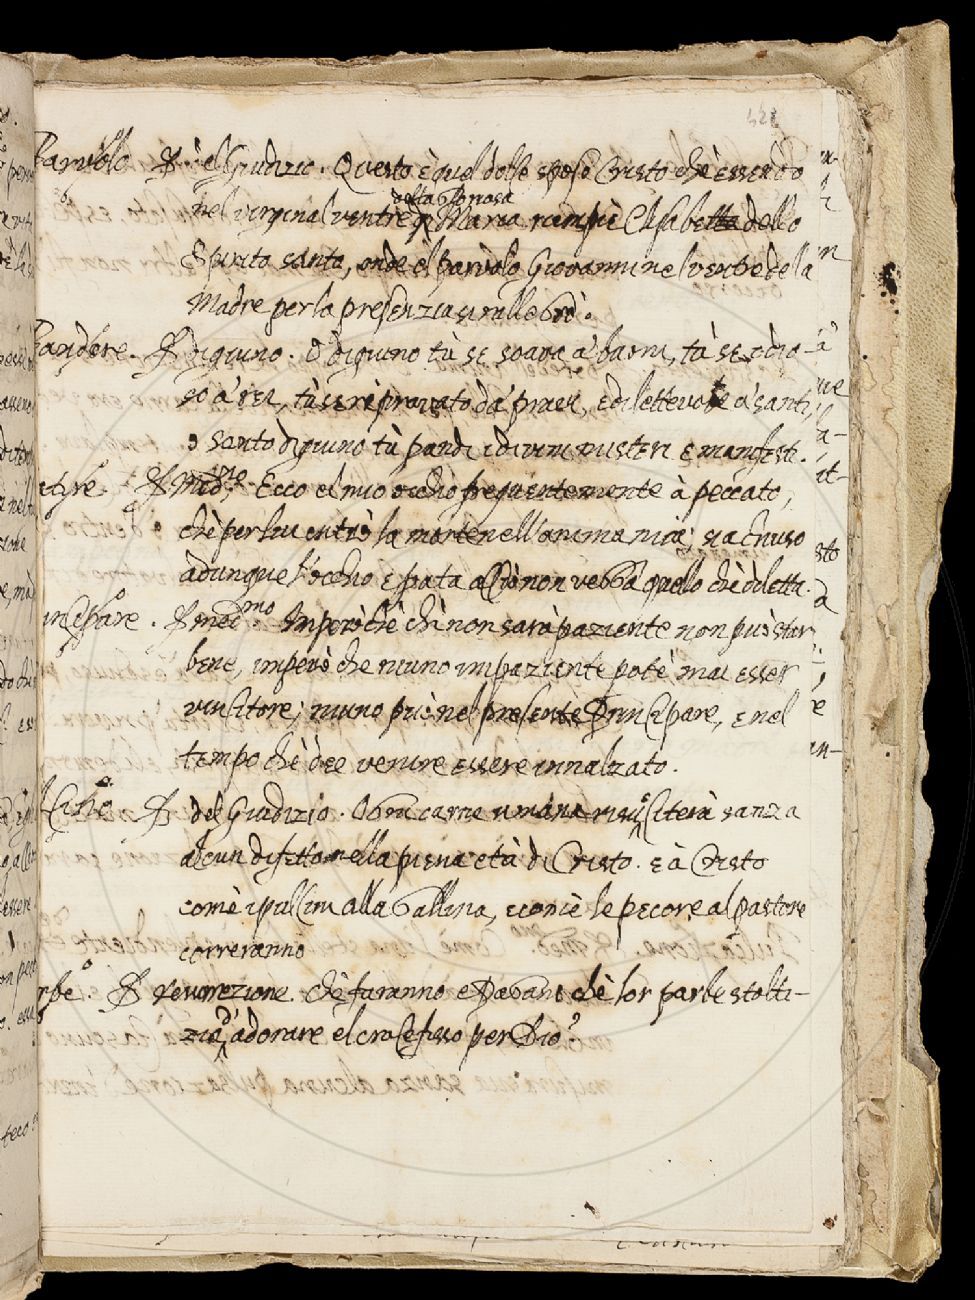 Parvolo. del Giudizio. Questo è quel dolce sposo Cristo chè essendo
nel virginal ventre della Gloriosa Maria riempiè Elisabetta dello
Spirito santo, onde el parvolo Giovanni nel ventre della
Madre per la presenzia si rallegrò.
Pandere. digiuno. O digiuno tù se soave à buoni, tù se odio-
so à rei, tù se riprovato dà pravi, e dilettevole à santi,
o santo digiuno tù pandi i divini misteri e manifesti.
med.mo Ecco el mio occhio frequentemente à peccato,
chè per lui entrò la morte nell'anima mia; sia chiuso
adunque l'occhio e pata acciò non vegga quello chè diletta.
Principare. med.mo Imperò chè chi non sarà paziente non può star
bene, imperò che niuno impaziente potè mai esser
vincitore; niuno può nel presente principare, e nel
tempo chè dee venire essere innalzato.
del Giudizio. Ogni carne umana risusciterà sanza
alcun difetto nella piena età di Cristo. e à Cristo
comè i pulcini alla Gallina, e comè le pecore al pastore
correranno
resurrezione. chè faranno e Pagani chè lor parbe stolti-
zia d'adorare el crocefisso per Dio?